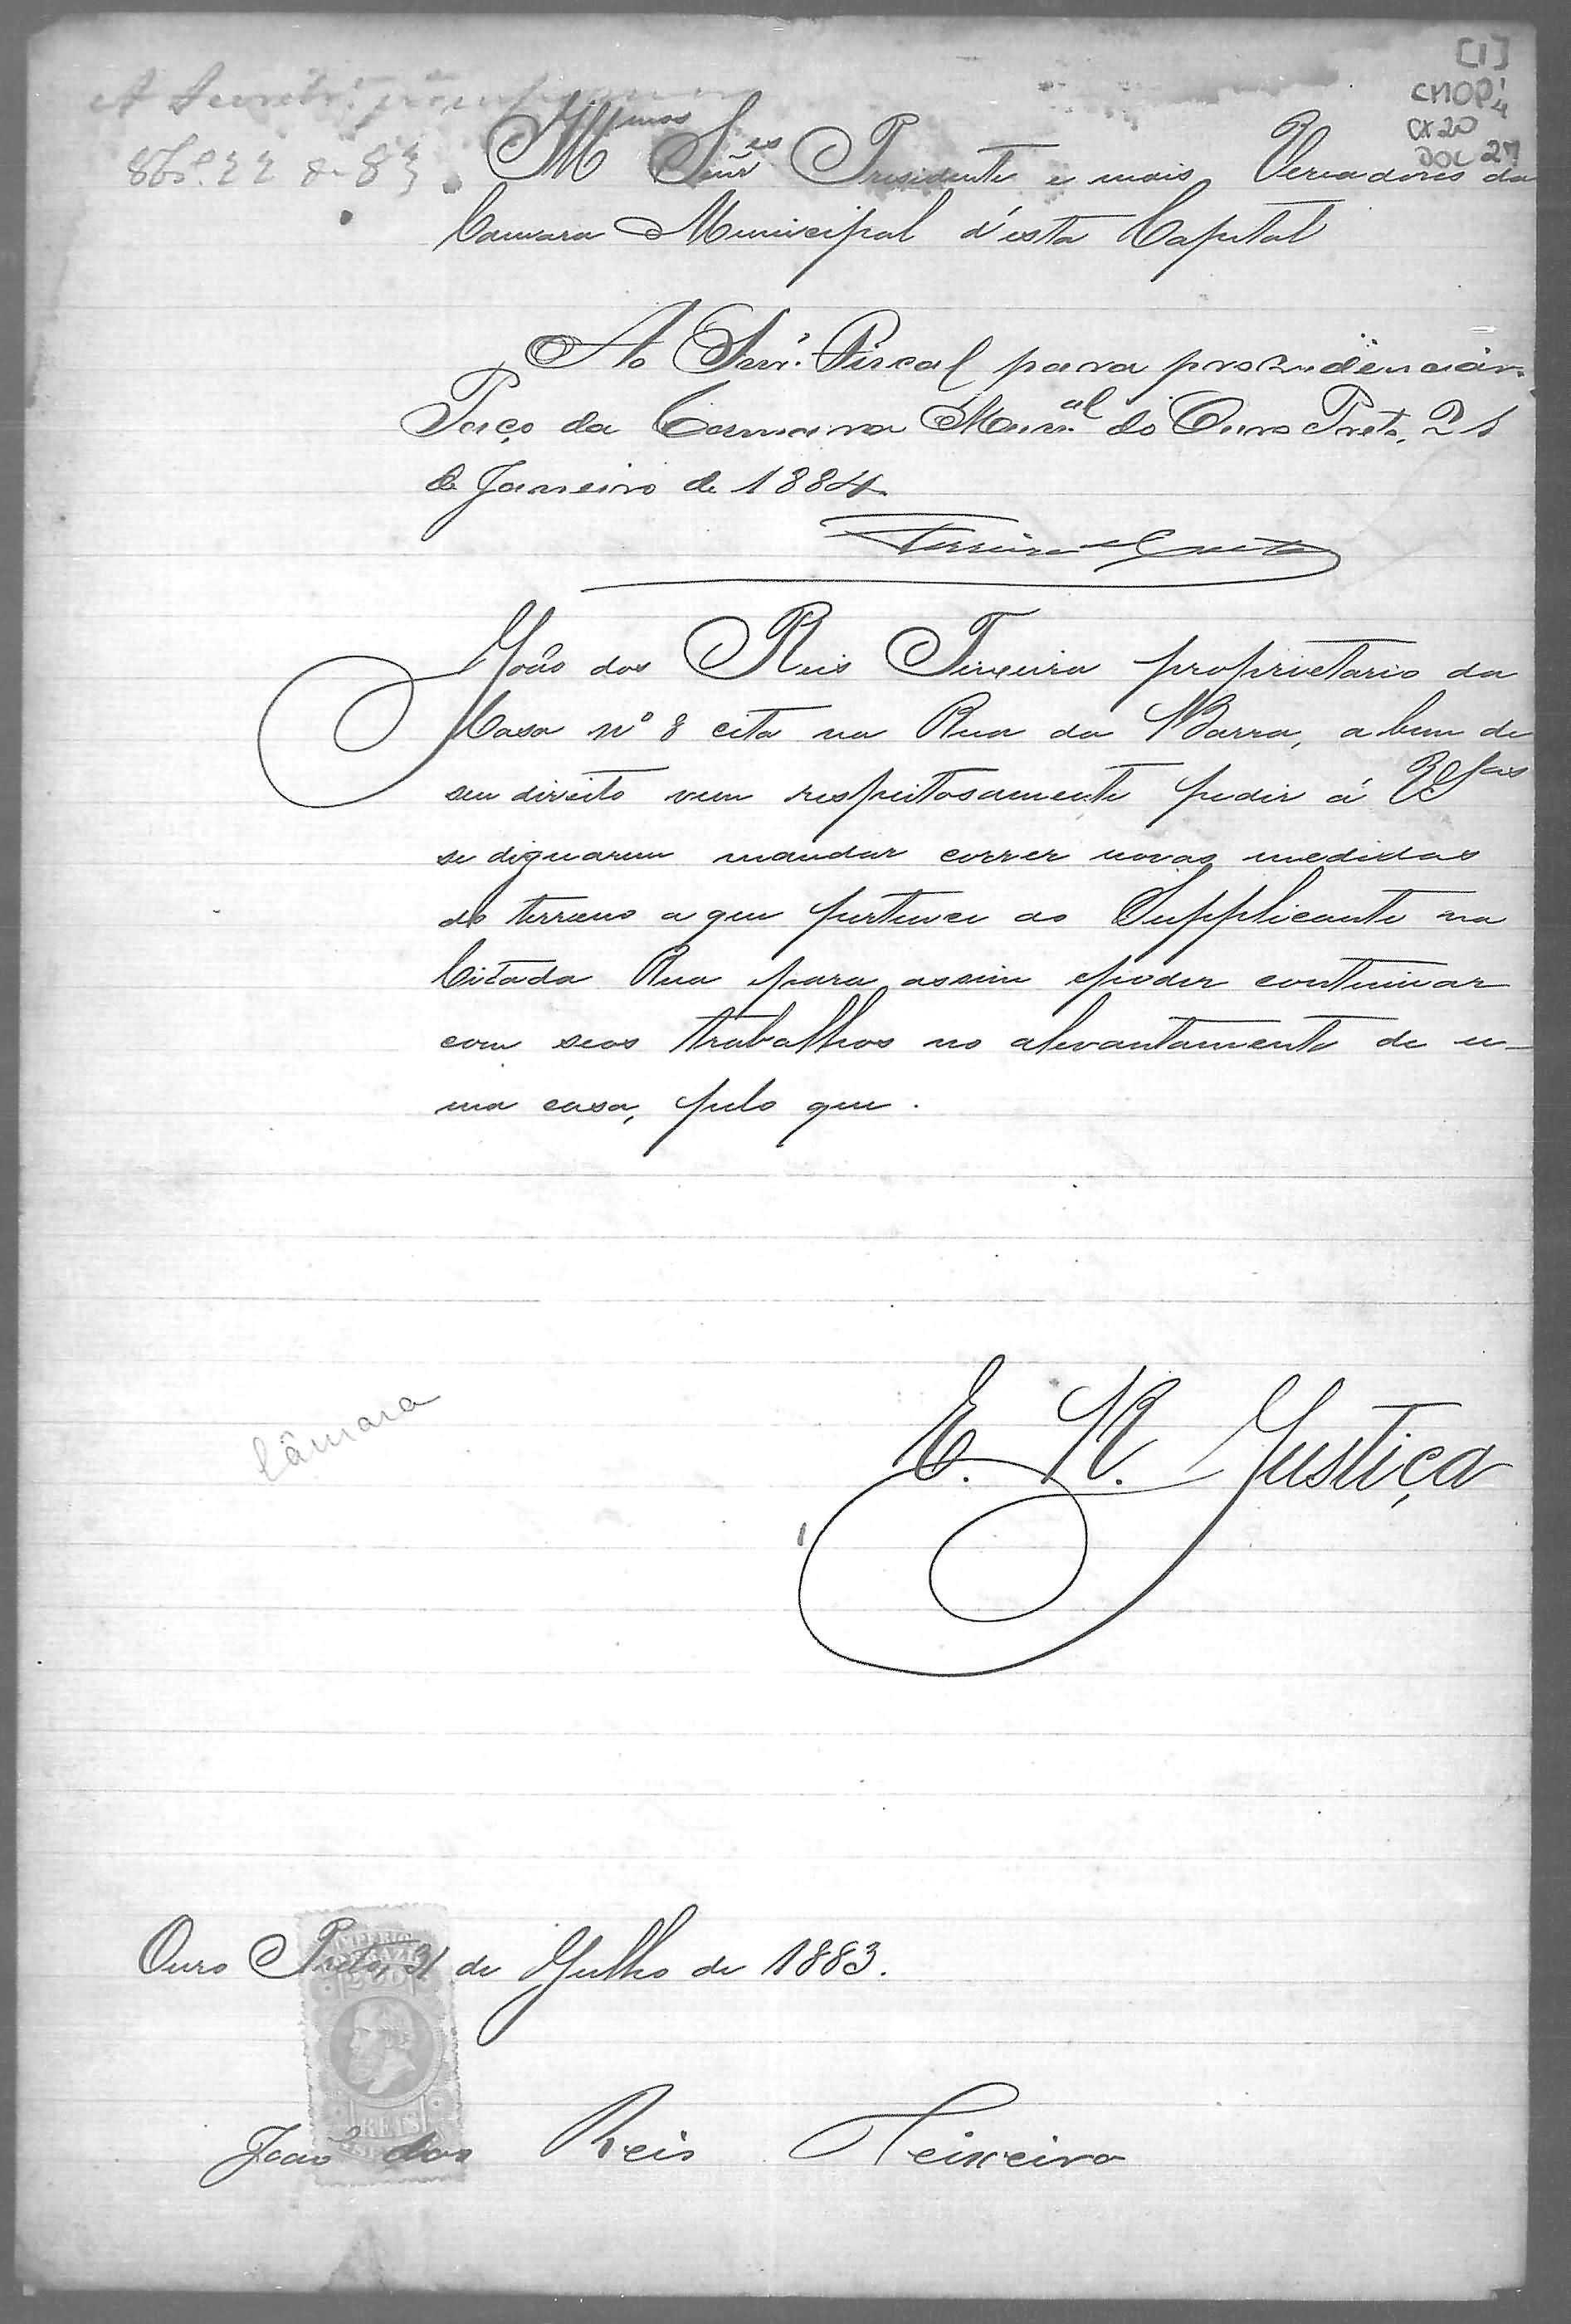 [1]
CMOP
CX 20
DOC 27
Illmos Senres Presidente e mais Vereadores da
Camara Municipal d'esta Capital
Ao Senr. Fiscal para providenciar.
Paço da Camara Munal do Ouro Preto, 21
de Janeiro de 1884.
João dos Reis Teixeira proprietario da
Casa nº 8 cita na Rua da Barra, a bem de
seu direito vem respeitosamente pedir á V.Sas
se dignarem mandar correr novas medidas
do terreno a que pertence ao Supplicante na
Citada Rua para assim poder continuar
com seos trabalhos no alevantamento de u-
ma casa, pelo que.
E. R. Justiça
Câmara
Ouro Preto, 31 de Julho de 1883.
João dos Reis Teixeira